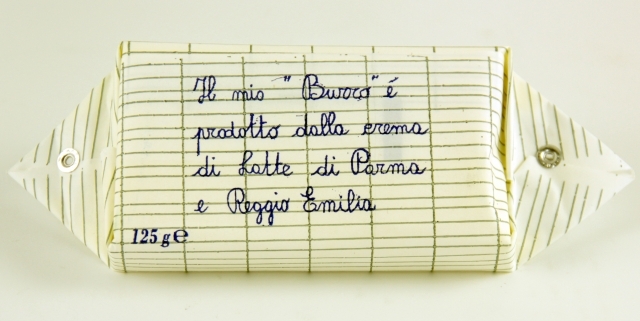 Il mio "Burro" é
prodotto dalla crema
di Latte di Parma
e Reggio Emilia
125 g e